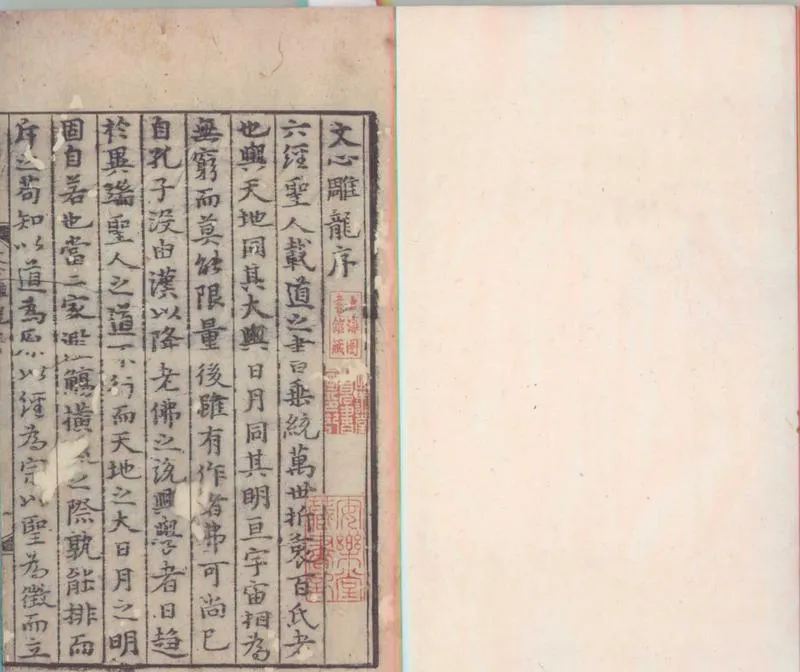 文心雕龍序
六經聖人載道之書垂統萬世折衷百氏者
也與天地同其大與日月同其明亘宇宙相為
無窮而莫能限量後雖有作者弗可尚已
自孔子沒由漢以降老佛之說興學者日趨
於異端聖人之道不行而天地之大日月之明
固自若也當二家濫觴橫流之際孰能排而
斥之苟知以道為原以經為宗以聖為徵而立
上海圖
書館藏
安樂堂
藏書記